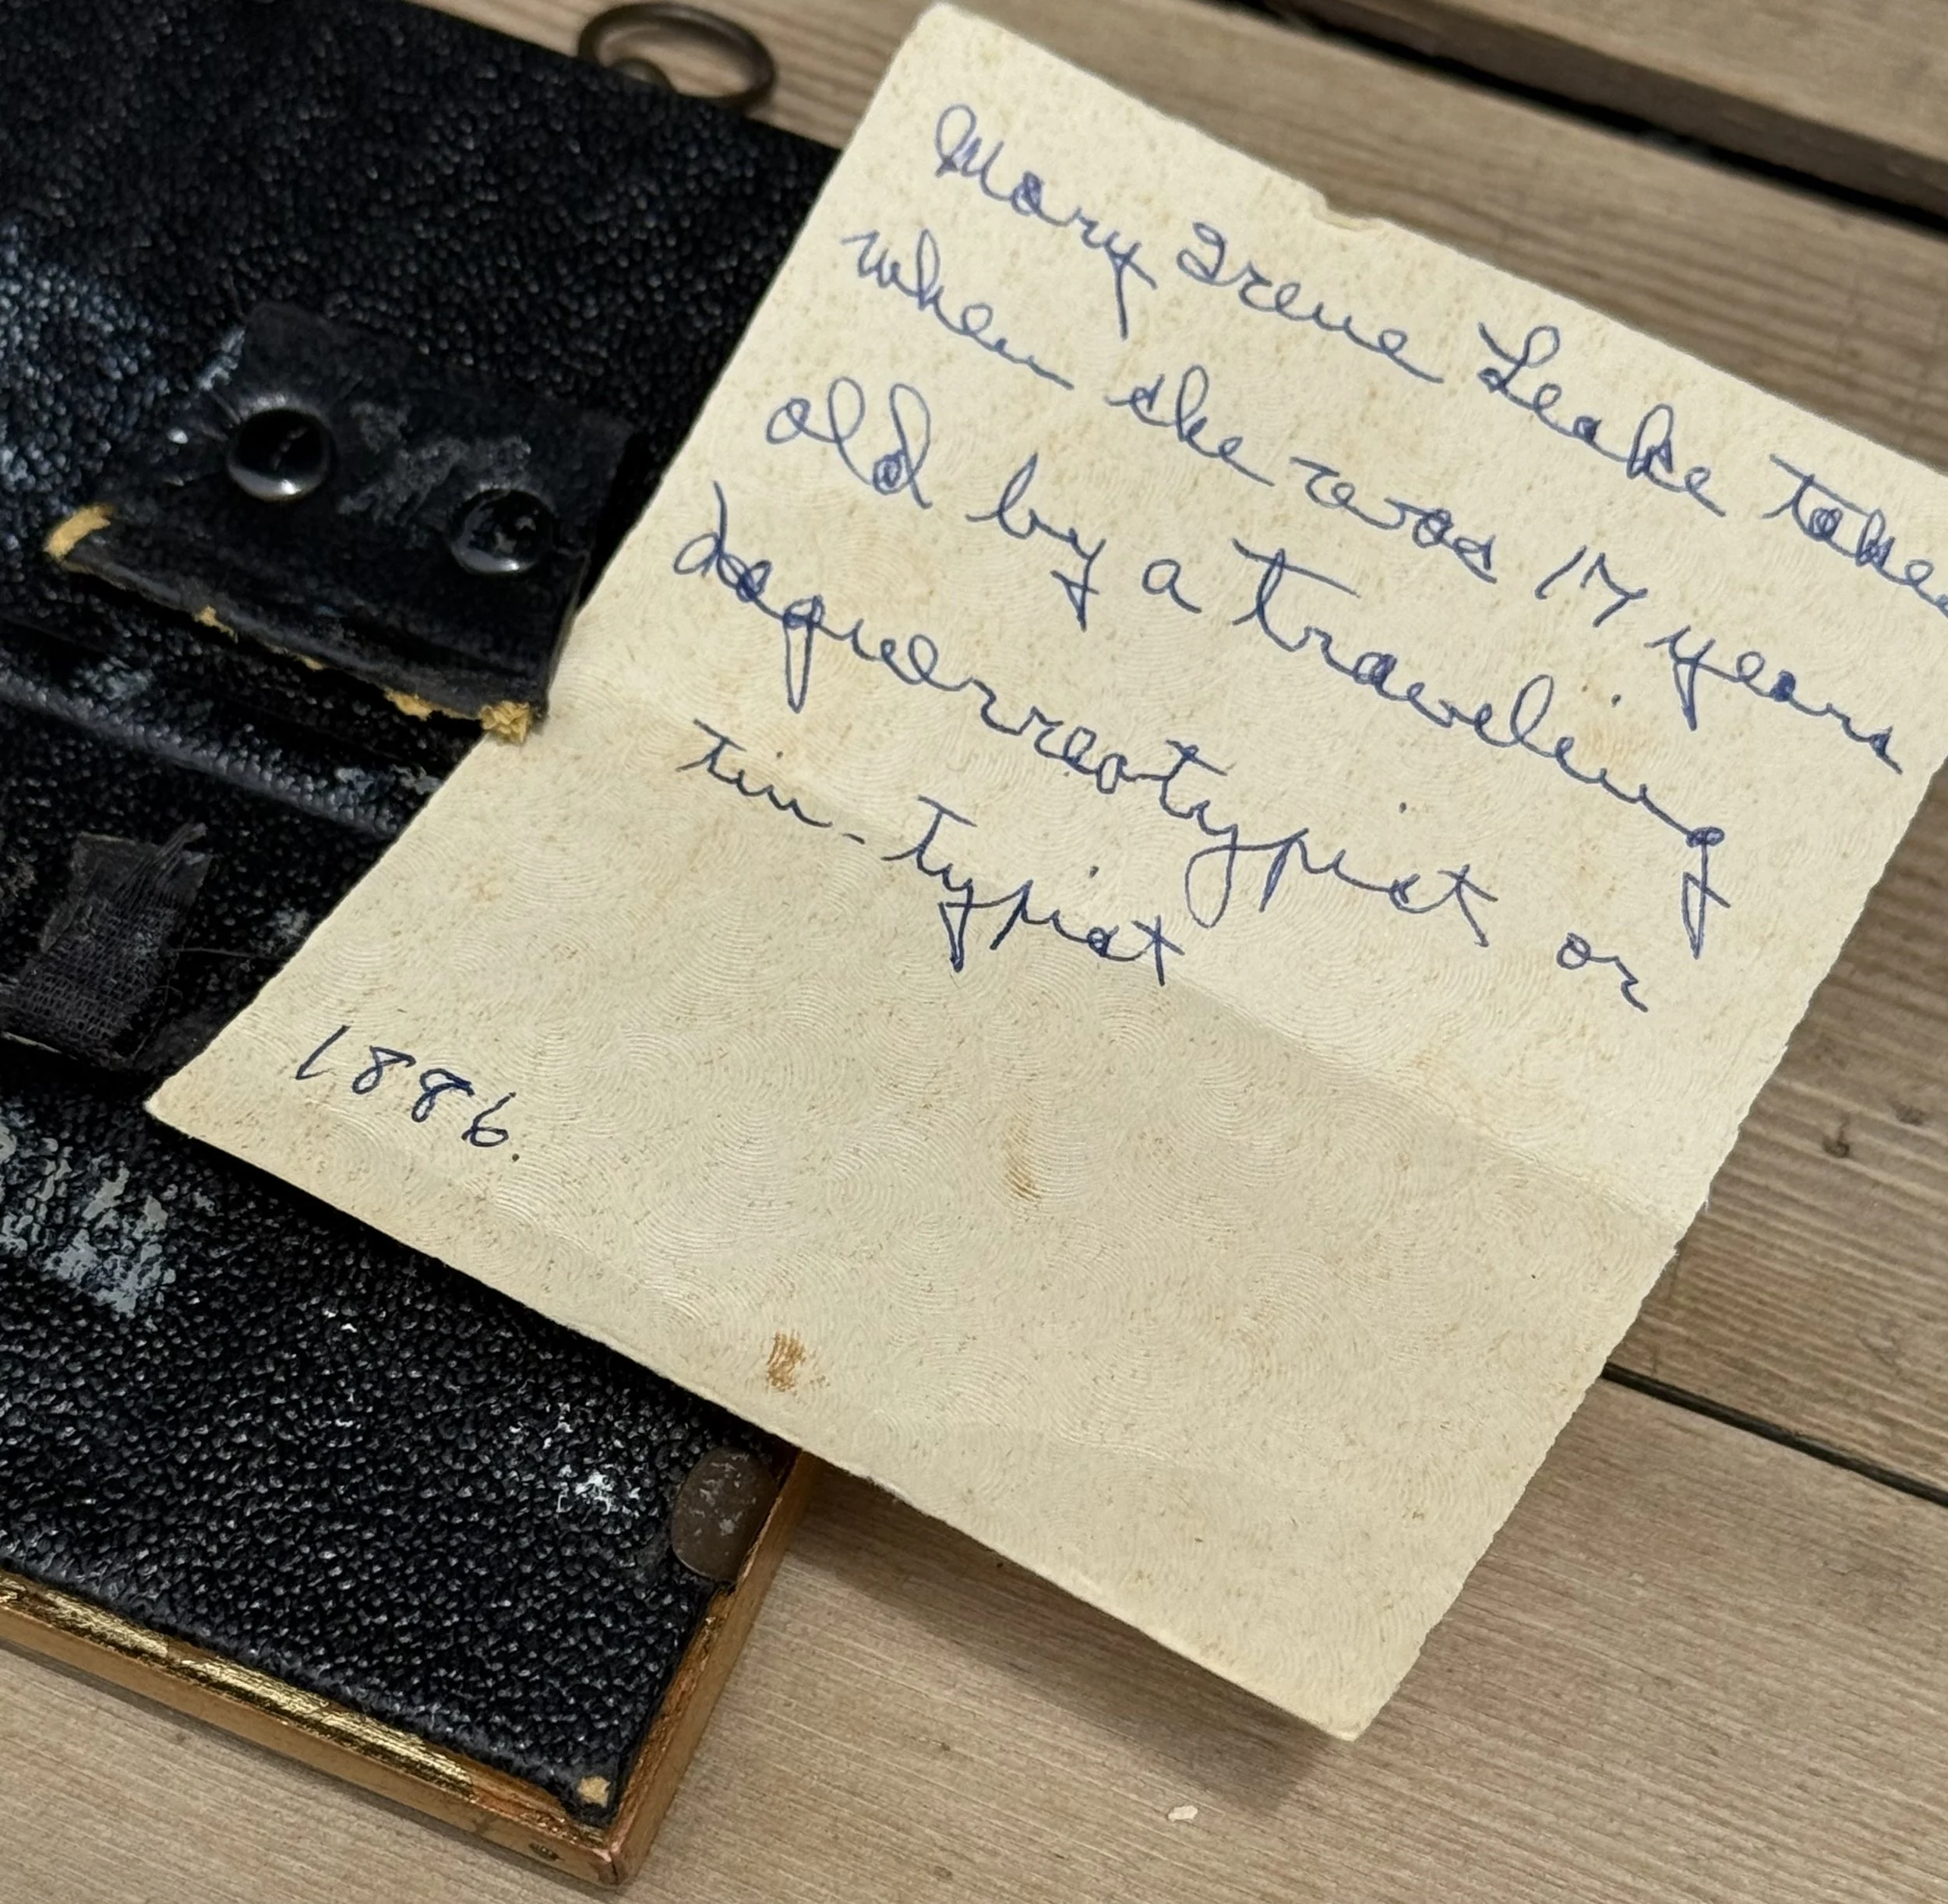 Mary Irene Leake taken
when she was 17 years
old by a traveling
daguerreotypist or
tin-typist
1886.